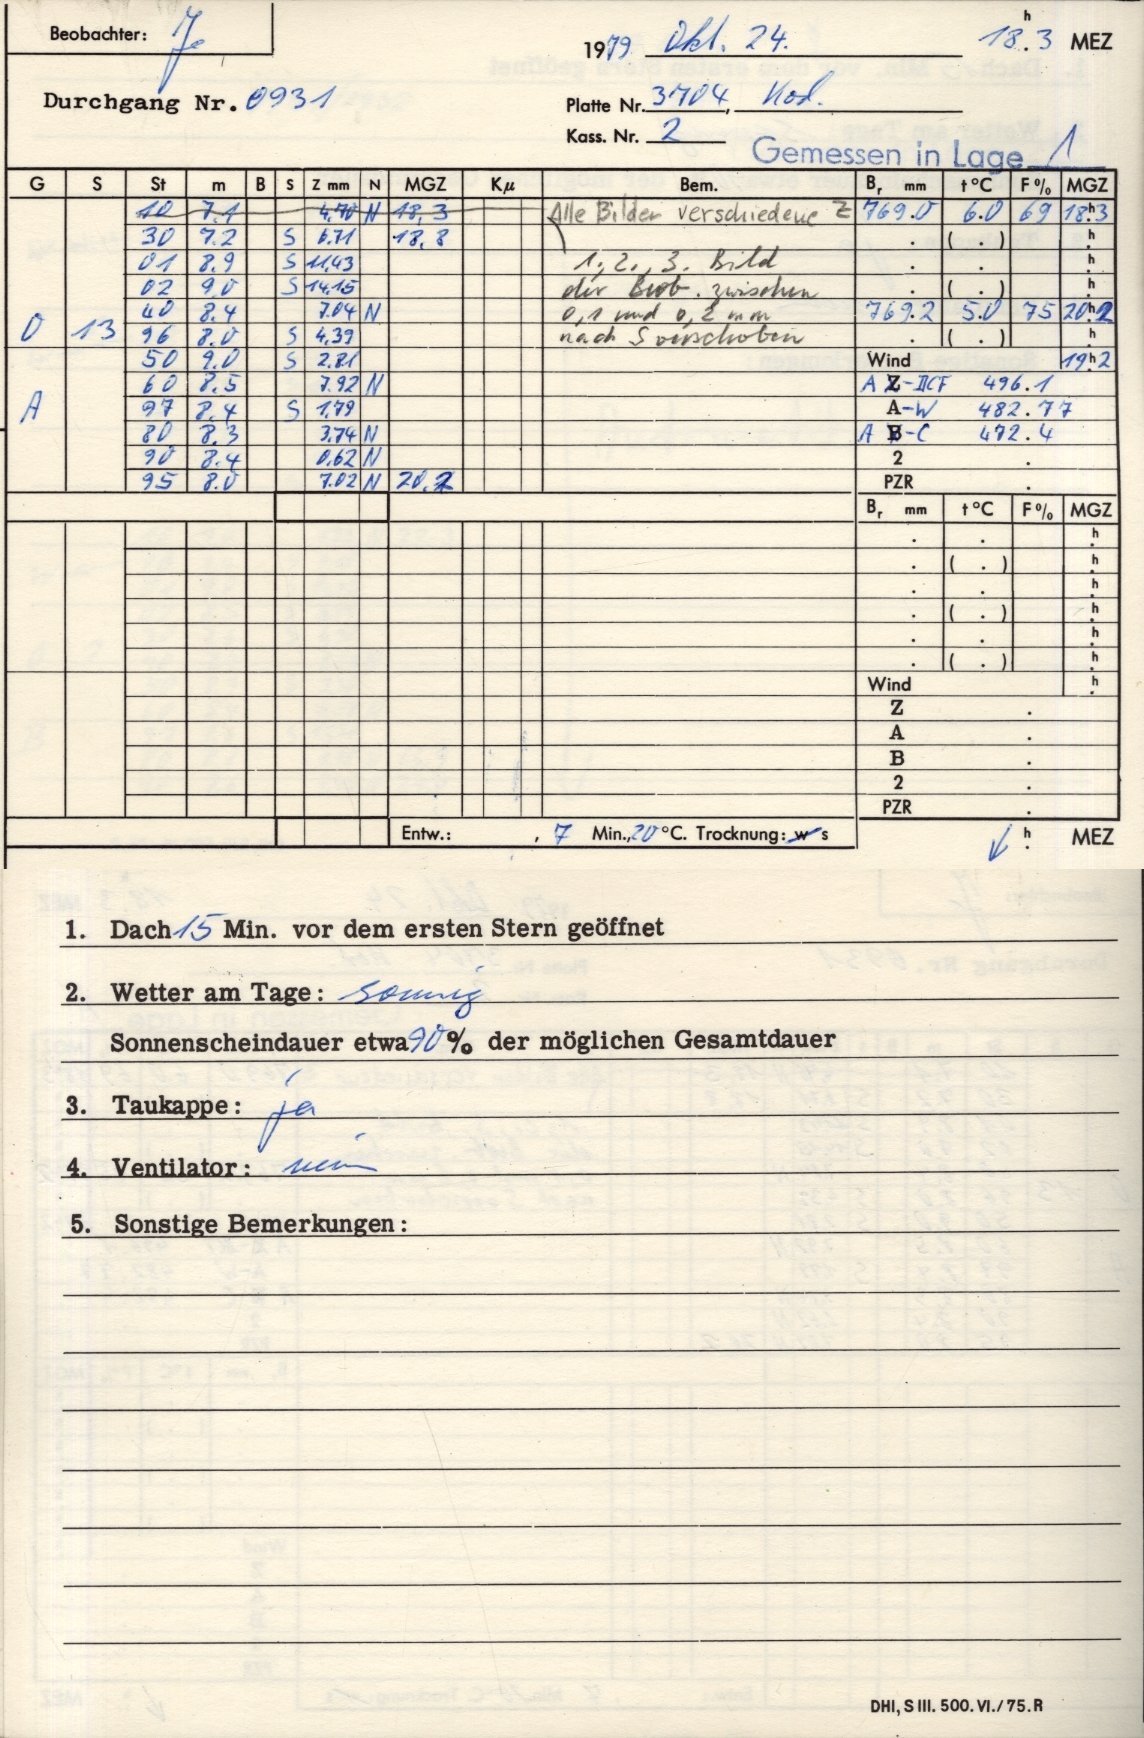 Beobachter: Je
1979 Okt. 24. 18.h3 MEZ
Durchgang Nr. 0931
Platte Nr. 3704, Kod.
Kass. Nr. 2
Gemessen in Lage 1
G S St m B S Z mm N MGZ Kμ Bem. Br mm t°C F% MGZ
10 7.1 4.70 N 18.3 Alle Bilder verschiedene Z 769.0 6.0 69 18h3
30 7.2 S 6.71 18.8 . ( . ) h
01 8.9 S 11.43 1., 2., 3. Bild . . h
02 9.0 S 14.15 der Beob. zwischen . ( . ) h
40 8.4 7.04 N 0,1 und 0,2 mm 769.2 5.0 75 20h2
O 13 96 8.0 S 4.39 nach S verschoben . ( . ) h
50 9.0 S 2.81 Wind 19h2
60 8.5 7.92 N A Z-DCF 496.1
A 97 8.4 S 1.79 A-W 482.77
80 8.3 3.74 N A B-C 472.4
90 8.4 0.62 N 2 .
95 8.0 7.02 N 20.2 PZR .
Br mm t°C F% MGZ
. . h
. ( . ) h
. . h
. ( . ) h
. . h
. ( . ) h
Wind h
Z .
A .
B .
2 .
PZR .
Entw.: , 7 Min., 20°C. Trocknung: w s
h. MEZ
1. Dach 15 Min. vor dem ersten Stern geöffnet
2. Wetter am Tage: sonnig
Sonnenscheindauer etwa 90% der möglichen Gesamtdauer
3. Taukappe: ja
4. Ventilator: nein
5. Sonstige Bemerkungen:
DHI, S III. 500. VI./75. R